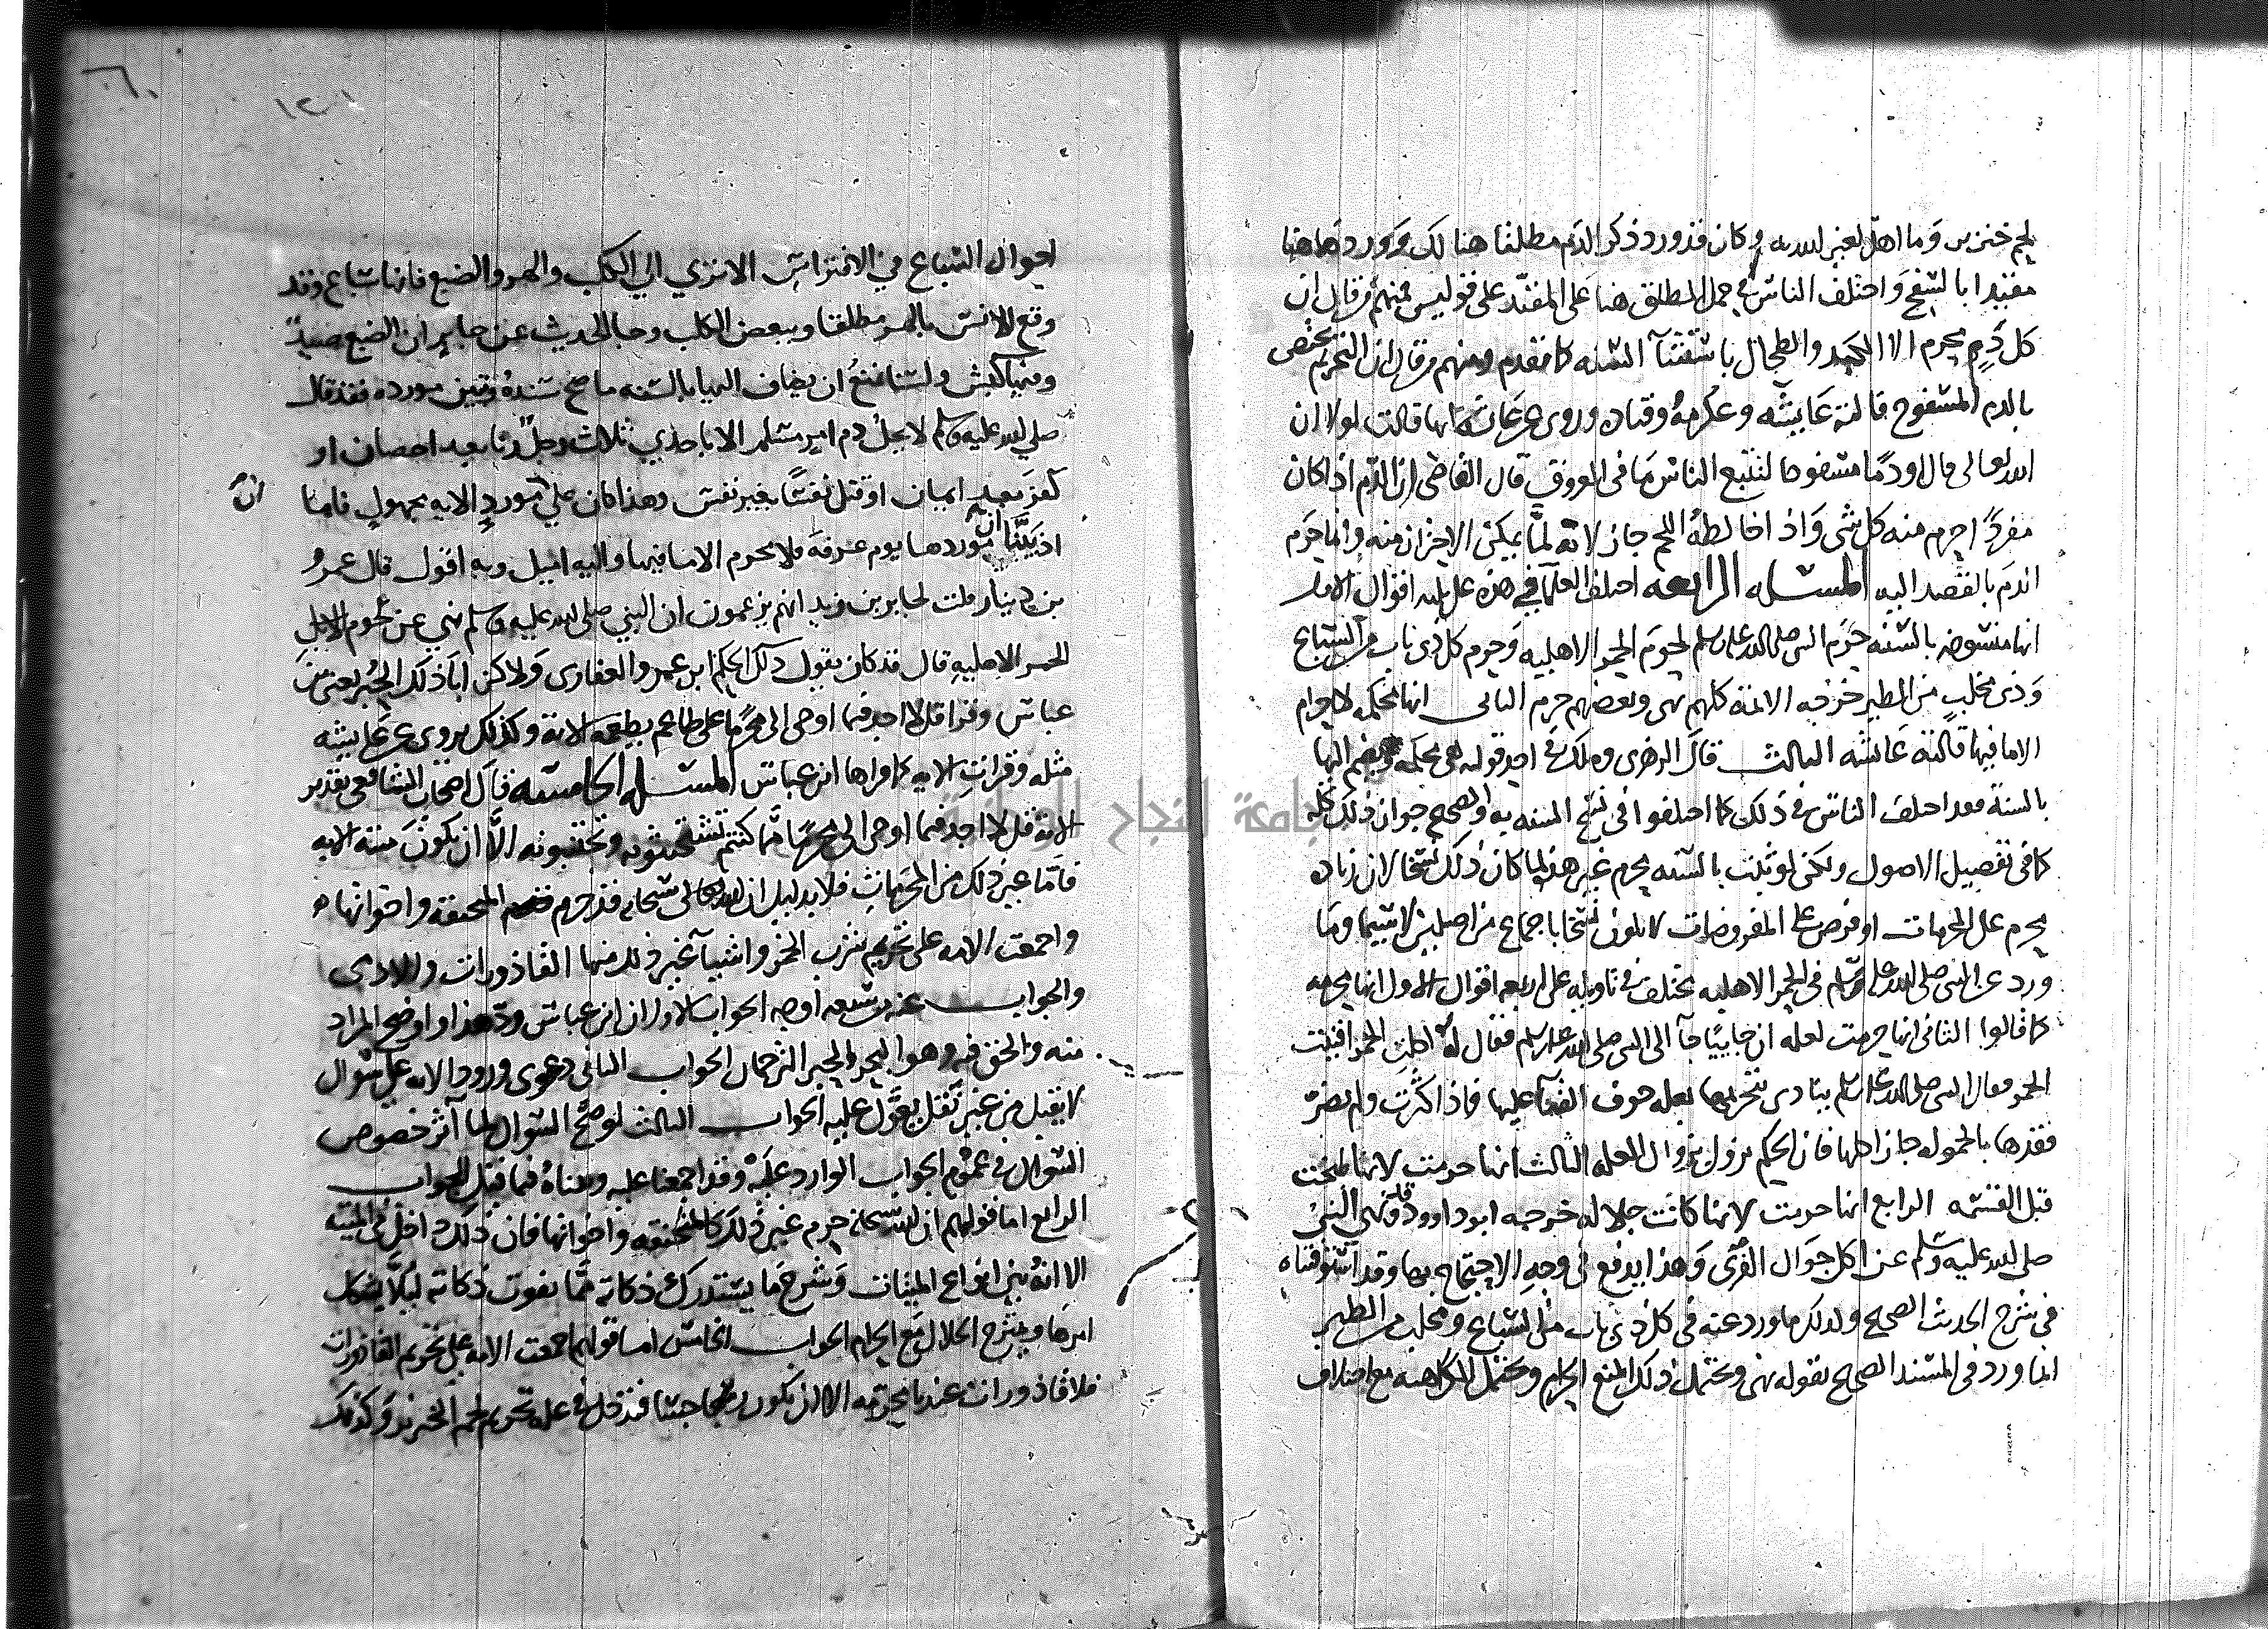 لحم خنزير وما اهل لغير الله به وكان قد ورد ذكر الدم مطلقا هنالك وورد هاهنا
مقيدا بالسفح واختلف الناس في حمل المطلق هنا على المقيد على قولين فمنهم من قال ان
كل دم محرم الا الكبد والطحال باستثنآ السنه كما تقدم ومنهم من قال ان التحريم يختص
بالدم المسفوح قالته عايشه وعكرمه وقتاده وروى عن عائشة انها قالت لولا ان
الله تعالى قال او دما مسفوحا لتتبع الناس ما في العروق قال القاضي ان الدم اذا كان
مفردا حرم منه كل شى واذا خالطه اللحم جاز لانه لما يمكن الاحتراز منه وانما حرم
الدم بالقصد اليه المسئله الرابعه اختلف العلمآ في هذه على ثلثه اقوال الاول
انها منسوخه بالسنه حرم النبي صلى الله عليه وسلم لحوم الحمر الاهليه وحرم كل ذي ناب من السباع
وذى مخلب من الطير خرجه الائمة كلهم نهى وبعضهم حرم الثاني انها محكمه لا حرام
الا ما فيها قالته عائشه الثالث قال الزهرى ومالك في احد قوليه هي محكمه ويضم اليها
بالسنة وقد اختلف الناس في ذلك كما اختلفوا في نسخ السنه به والصحيح جواز ذلك كله
كما في تفصيل الاصول ولكن لو ثبت بالسنه محرم غير هذه لما كان ذلك نسخا لان زياده
محرم على المحرمات او فرض على المفروضات لا يكون نسخا باجماع من اصليين لا سيما وما
ورد عن النبي صلى الله عليه وسلم في الحمر الاهليه مختلف في تاويله على اربعه اقوال الاول انها محرمه
كما قالوا الثاني انها حرمت لعله ان جاييا جآ الى النبي صلى الله عليه وسلم فقال له اكلت الحمر افنيت
الحمر فقال النبي صلى الله عليه وسلم ينادى بتحريمها لعله خوف الفنآ عليها فاذا كثرت ولم يضر
فقدها بالحموله جاز اكلها فان الحكم يزول بزوال العله الثالث انها حرمت لانها طبخت
قبل القسمه الرابع انها حرمت لانها كانت جلاله خرجه ابو داوود قلنا نهى النبي
صلى الله عليه وسلم عن اكل جوال القرى وهذا يدفع في وجه الاحتجاج بها وقد استوفيناه
في شرح الحديث الصحيح ولذلك ما ورد عنه في كل ذى ناب من السباع ومخلب من الطير
انما ورد في المسند الصحيح بقوله نهى ويحتمل ذلك المنع الحرام ويحتمل الكراهيه مع اختلاف
احوال السباع في الافتراس الا ترى الى الكلب والهر والضبع فانها سباع وقد
وقع الانس بالهر مطلقا وببعض الكلب وجا الحديث عن جابر ان الضبع صيد
وفيها كبش ولسنا نمنع ان يضاف اليها بالسنه ما صح سنده وتبين مورده فقد قال
صلى الله عليه وسلم لا يحل دم امرء مسلم الا باحدي ثلاث رجل زنا بعد احصان او
كفر بعد ايمان او قتل نفسا بغير نفس وهذا كان على مورد الايه مجهول فاما
ان
اذ بينا ان موردها يوم عرفة فلا محرم الا ما فيها واليه اميل وبه اقول قال عمرو
بن دينار قلت لجابر بن زيد انهم يزعمون ان النبي صلى الله عليه وسلم نهي عن لحوم
الحمر الاهليه قال قد كان يقول ذلك الحكم ابن عمرو الغفارى ولاكن ابا ذلك الحبر يعني بن
عباس وقرا قل لا اجد فيما اوحى الي محرما على طاعم يطعمه الاية وكذلك يروى عن عايشه
مثله وقرات الايه كما قراها ابن عباس المسئله الخامسه قال اصحاب الشافعي تقدير
الاية قل لا اجد فيما اوحى الي محرما مما كنتم تستخبثونه وتجتنبونه الا ان يكون ميتة الايه
فاما غير ذلك من المحرمات فلا بدليل ان الله تعالى سبحانه قد حرم المنخنقه واخواتها
واجمعت الامه على تحريم شرب الخمر واشيآ غير ذلك منها القاذورات والادمي
والجواب عنه من سبعه اوجه الجواب الاول ان ابن عباس رد هذا واوضح المراد
منه والحق فيه وهو البحر والحبر الترجمان الجواب الثاني دعوى ورود الايه على سؤال
لا يقبل من غير نقل يعول عليه الجواب الثالث لو صح السوال لما آثر خصوص
السوال في عموم الجواب الوارد عليه وقد اجمعنا عليه وبيناه فيما قبل الجواب
الرابع اما قولهم ان الله سبحانه حرم غير ذلك كالمنخنقه واخواتها فان ذلك داخل في الميته
الا انه بين انواع الميتات وشرح ما يستدرك ذكاته مما يفوت ذكاته ليلا يشكل
امرها ويمزج الحلال مع الحرام الجواب الخامس اما قولهم اجمعت الامه على تحريم القاذورات
فلا قاذورات عندنا محرمه الا ان يكون رجسا فتدخل في علة تحريم لحم الخنزير وكذلك